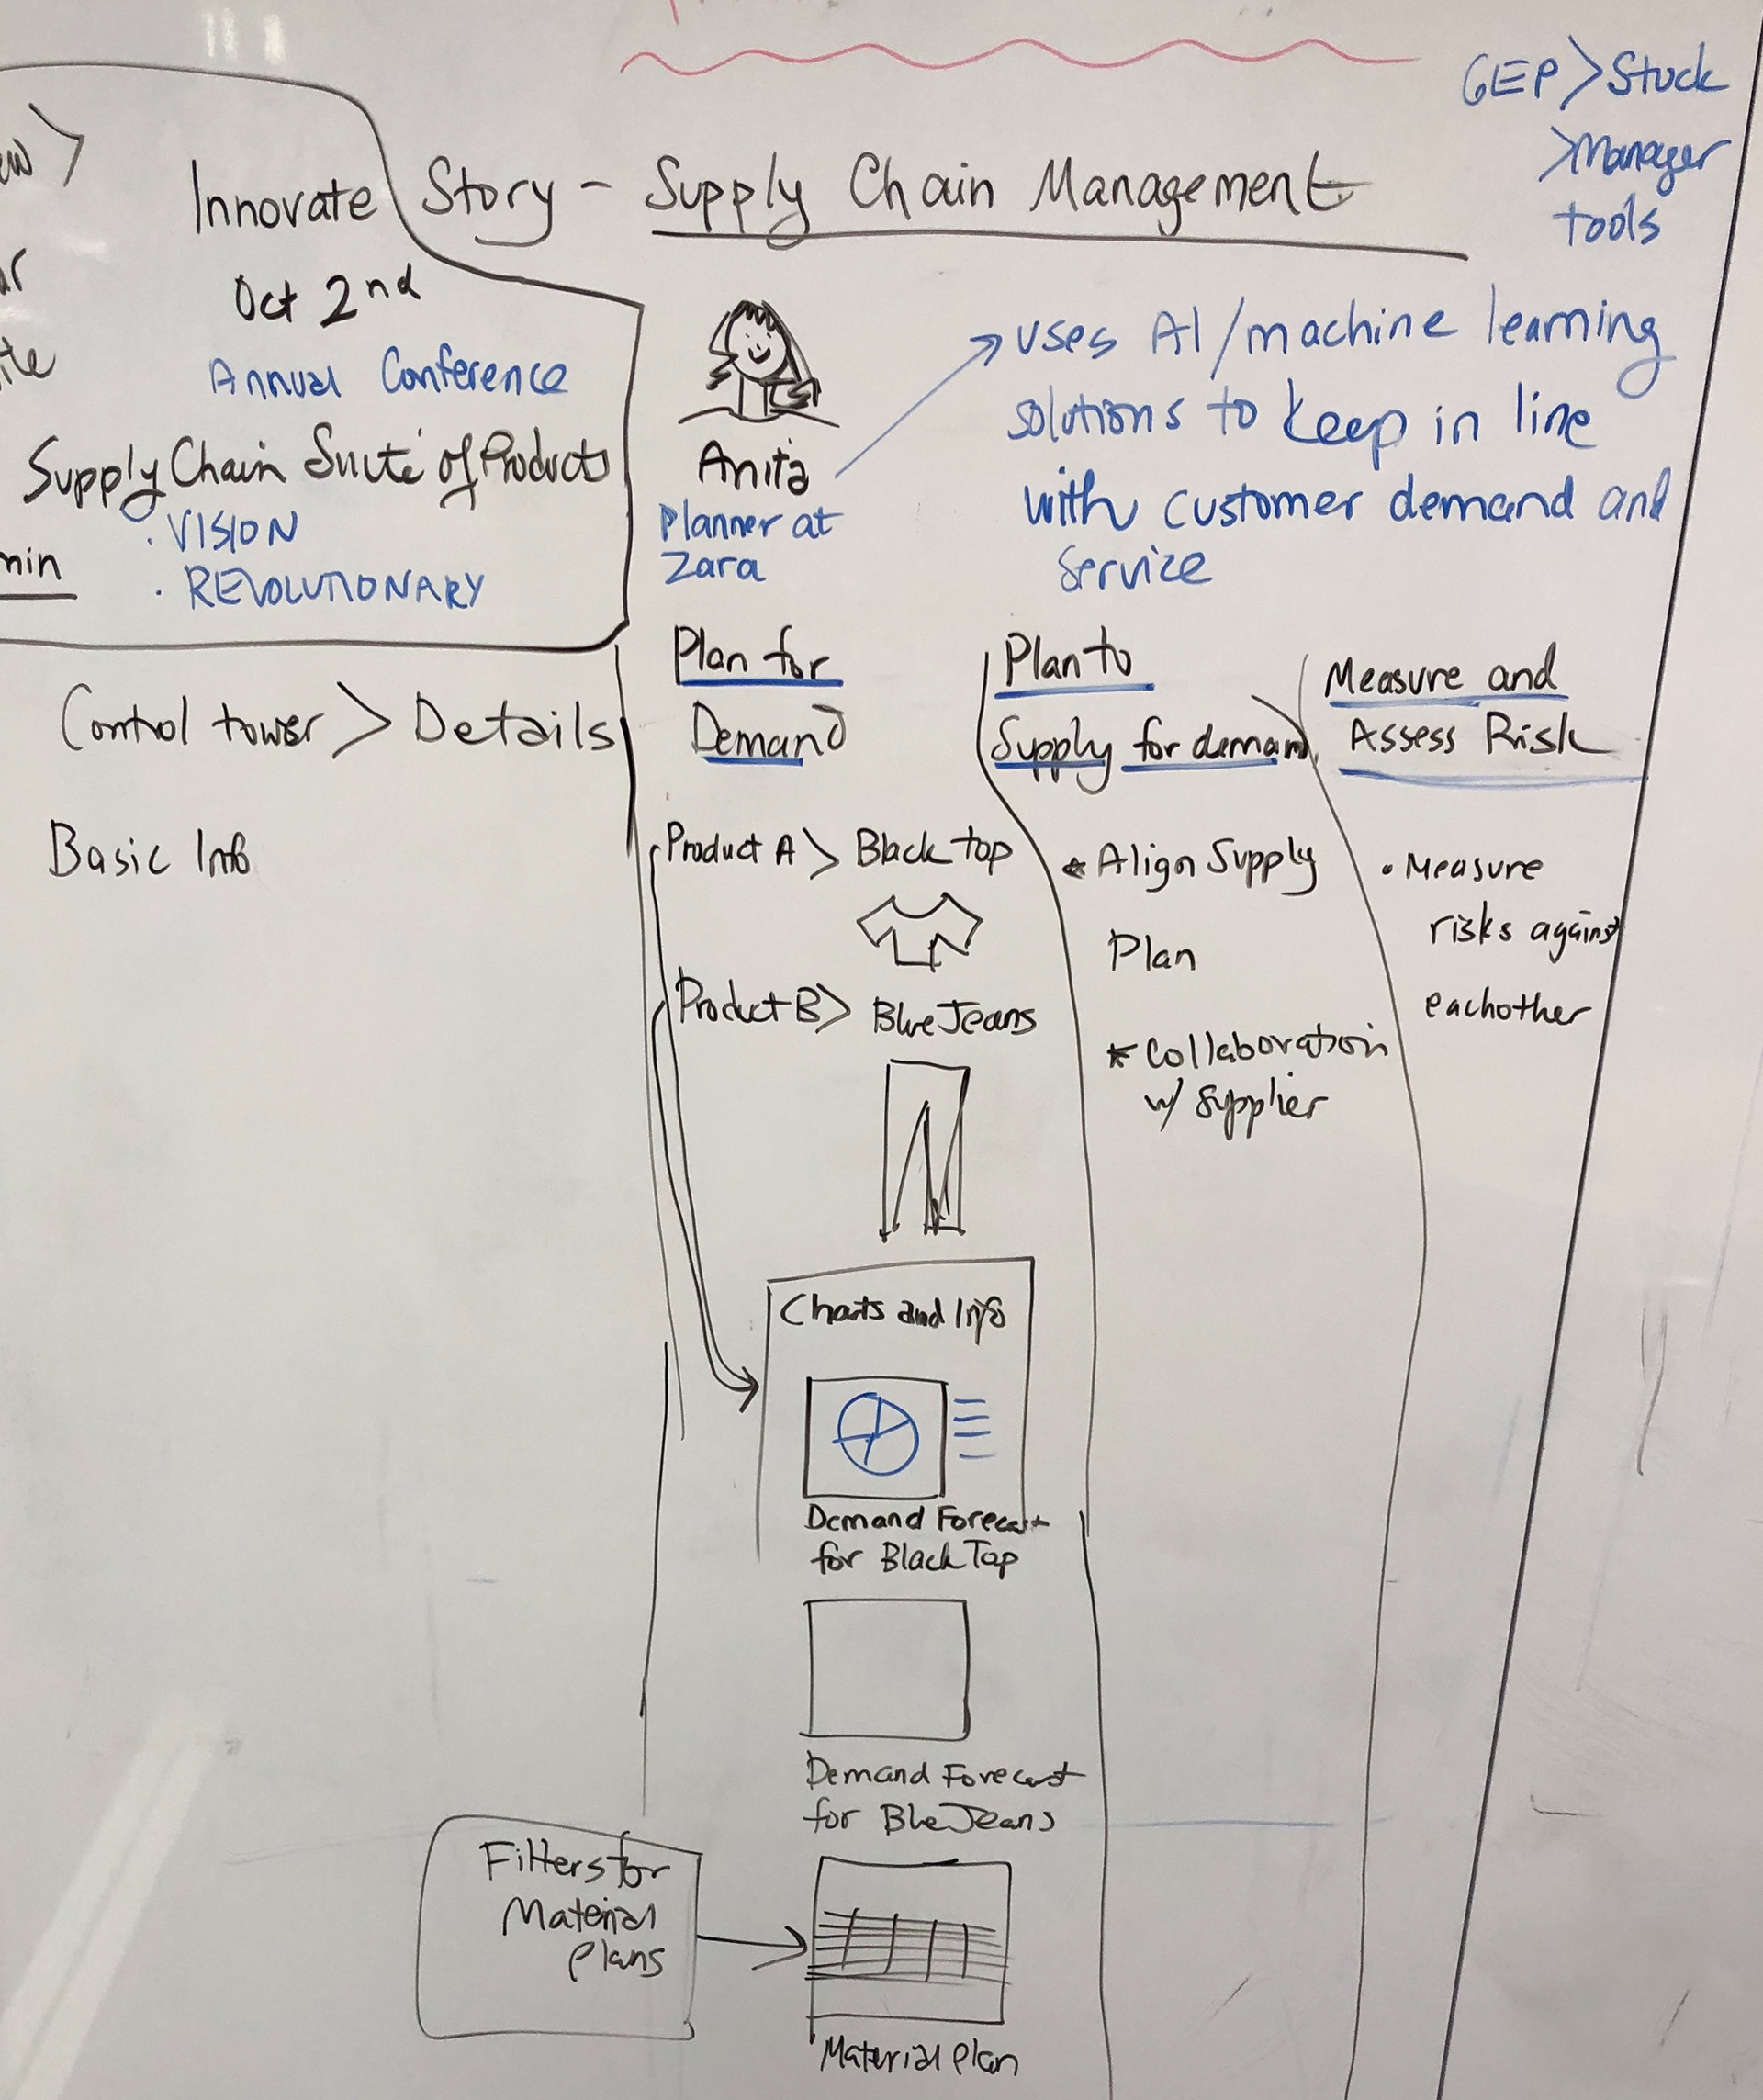 GEP > Stock
> Manager
tools
Innovate Story - Supply Chain Management
Oct 2nd
Annual Conference
Supply Chain Suite of Products
· VISION
· REVOLUTIONARY
min
Anita
Planner at
Zara
uses AI/machine learning
solutions to keep in line
with customer demand and
service
Control tower > Details
Basic Info
Plan for
Demand
Product A > Black top
Product B > Blue Jeans
Charts and Info
Demand Forecast
for Black Top
Demand Forecast
for Blue Jeans
Filters for
Material
Plans
Material Plan
Plan to
Supply for demand
* Align Supply
Plan
* Collaboration
w/ Supplier
Measure and
Assess Risk
· Measure
risks against
eachother